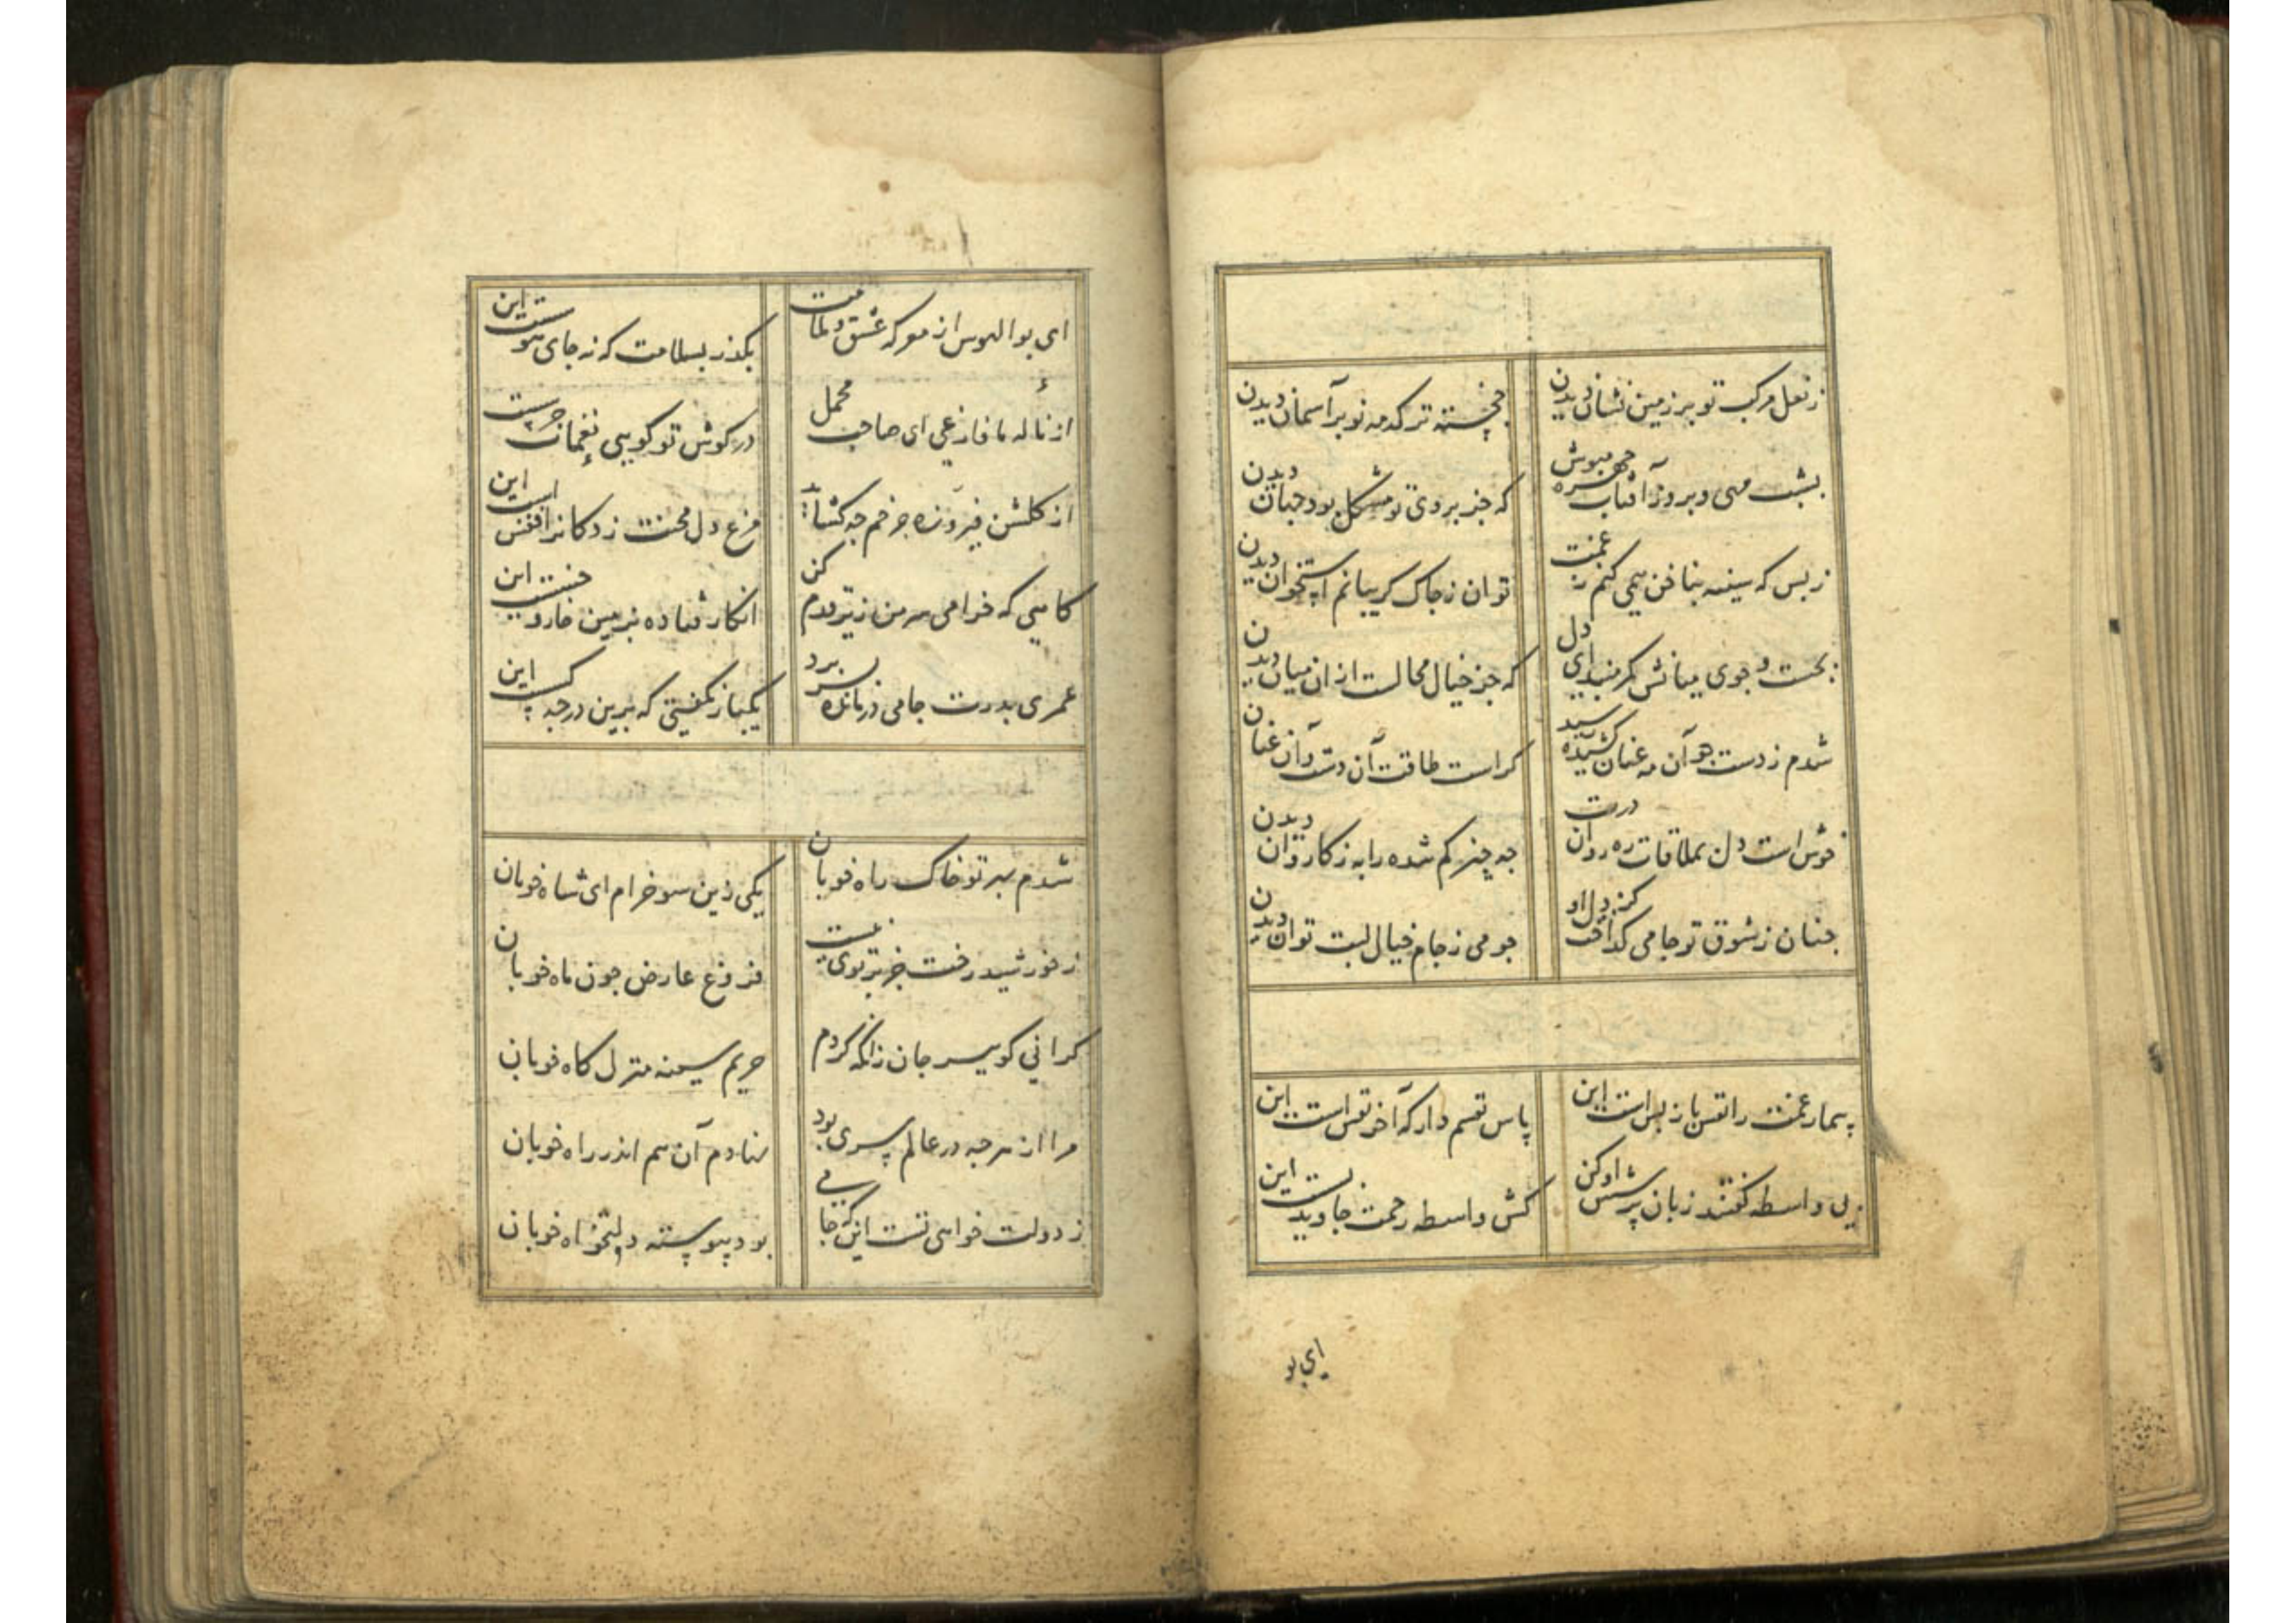 ز نعل مرکب تو بر زمین نشان دیدن
خجسته تر که مه نو بر آسمان دیدن
بشب مهی و بروز آفتاب چهره مپوش
که جز بروی تو مشکل بود جهان دیدن
ز بس که سینه بناخن همی کنم ز غمت
توان ز چاک کریبانم استخوان دیدن
بجست و جوی میانش کمر مبند ای دل
که جز خیال محالست از ان میان دیدن
شدم ز دست چو آن مه عنان کشیده رسید
کراست طاقت آن دست و آن عنان دیدن
خوش است دل بملاقات ره روان درت
چه چیز کم شده را به ز کاروان دیدن
چنان ز شوق تو جامی کداخت کز دل او
چو می ز جام خیال لبت توان دیدن
بیمار غمت را نفس باز پس است این
پاس نفسم دار که آخر نفس است این
بی واسطه کفتند زبان پرسش او کن
کش واسطه رحمت جاوید بس است این
ای بو
ای بوالهوس از معرکه عشق و ملامت
بکذر بسلامت که نه جای هوس است این
از ناله ما فارغی ای صاحب محمل
در کوش تو کویی نغمات جرس است این
از کلشن فیروزه چرخم چه کشاید
مرغ دل محنت زدکانرا قفس است این
کاهی که خرامی سر من زیر قدم کن
انکار فتاده بزمین خار و خس است این
عمری بدرت جامی درمانده بسر برد
یکبار نکفتی که برین در چه کس است این
شدم بیر تو خاک راه خوبان
یکی زین سو خرام ای شاه خوبان
ز خورشید رخت جز پرتوی نیست
فروغ عارض چون ماه خوبان
کرانی کو ببر جان زانکه کردم
حریم سینه منزل کاه خوبان
مرا از هر چه در عالم سری بود
نهادم آن هم اندر راه خوبان
ز دولت خواهی تست این که جامی
بود پیوسته دولتخواه خوبان